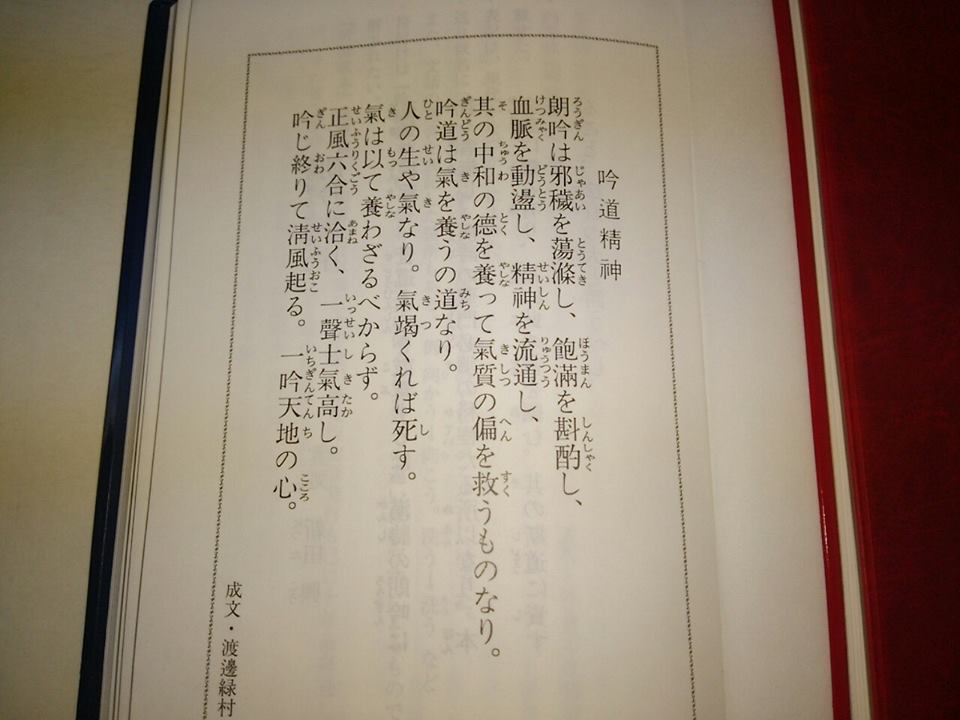 吟道精神
朗吟は邪穢を蕩滌し、飽滿を斟酌し、
血脈を動盪し、精神を流通し、
其の中和の德を養って氣質の偏を救うものなり。
吟道は氣を養うの道なり。
人の生や氣なり。氣竭くれば死す。
氣は以て養わざるべからず。
正風六合に洽く、一聲士氣高し。
吟じ終りて淸風起る。一吟天地の心。
成文・渡邊緑村